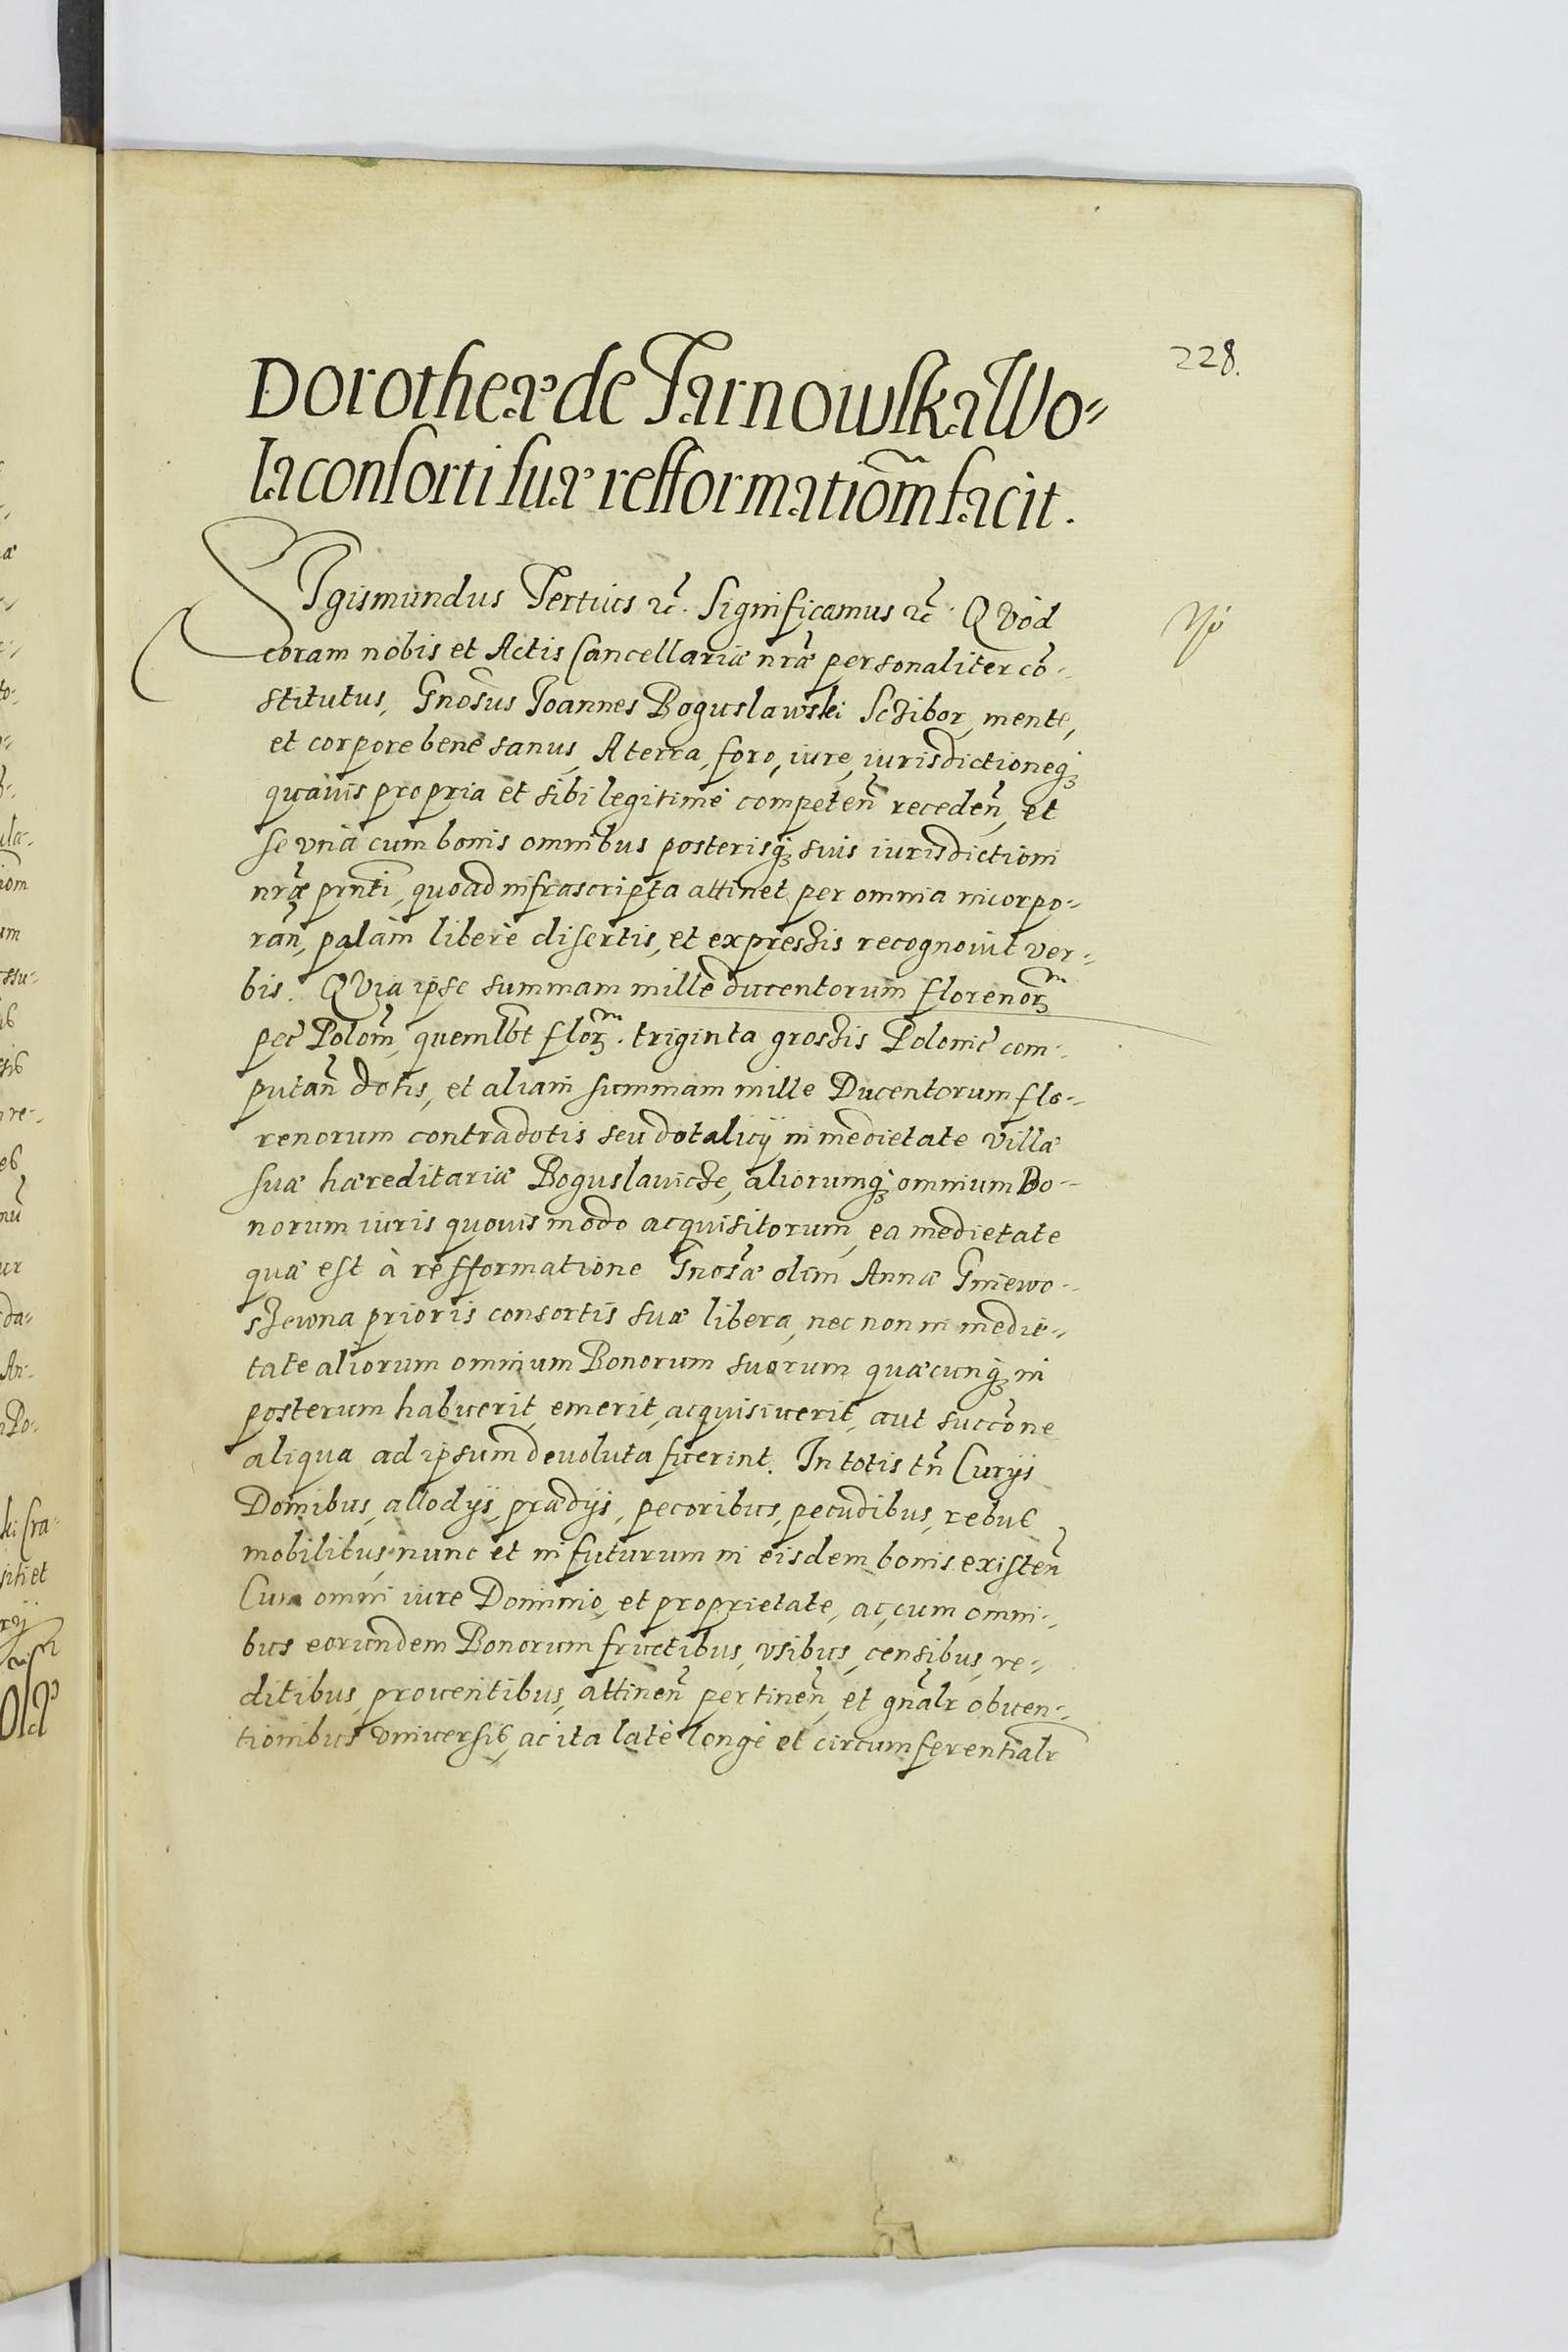 228.
Dorotheæ de Tarnowska Wo=
la consorti suæ refformatiom̃ facit.
SIgismundus Tertius &c̃. Significamus &c̃. QVòd
coram nobis et Actis Cancellariæ nr̃æ personaliter cõ-
stitutus, Gnõsus Joannes Boguslawski Sczibor, mente,
et corpore benè sanus, A terra, foro, iure, iurisdictioneq;
quavis propria et sibi legitimè competeñ recedeñ, et
se vnà cum bonis omnibus posterisq; suis iurisdictioni
nr̃æ pñti, quoad infrascripta attinet per omnia incorpo-
rañ, palàm liberè disertis, et expressis recognovit ver-
bis. QVia ipse summam mille ducentorum florenor̃
pec̃ Polom̃, quemlbt flor̃. triginta grossis Polonic̃ com-
putañ dotis, et aliam summam mille Ducentorum flo-
renorum contradotis seu dotalicij in medietate villæ
suæ hæreditariæ Boguslavicze, aliorumq; omnium Bo-
norum iuris quovis modo acquisitorum, ea medietate
quæ est à refformatione Gnosæ̃ olim Annæ Gniewo-
szewna prioris consortis suæ libera, nec non in medie-
tate aliorum omnium Bonorum suorum quæcunq; in
posterum habuerit, emerit, acquisiverit, aut succõne
aliqua ad ipsum devoluta fuerint. In totis tñ Curijs
Domibus, allodijs, prædijs, pecoribus, pecudibus, rebus
mobilibus, nunc et in futurum in eisdem bonis existeñ
Cum omni iure Dominio, et proprietate, ac, cum omni-
bus eorundem Bonorum fructibus, vsibus, censibus, re-
ditibus, proventibus, attineñ pertineñ, et gñalr obven-
tionibus vniversis, ac ita latè longè et circumferentialr